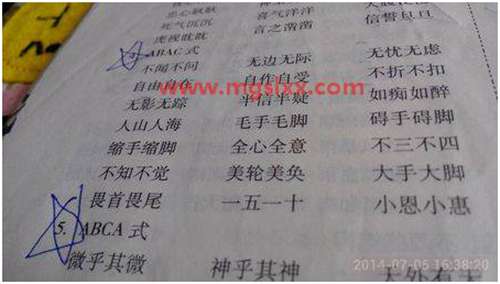 忠心耿耿
死气沉沉 喜气洋洋
虎视眈眈 言之凿凿 信誓旦旦
ABAC 式
不闻不问 无边无际 无忧无虑
自由自在 自作自受 不折不扣
www.mgsixx.com
无影无踪 半信半疑 如痴如醉
人山人海 毛手毛脚 碍手碍脚
缩手缩脚 全心全意 不三不四
不知不觉 美轮美奂 大手大脚
畏首畏尾 一五一十 小恩小惠
5. ABCA 式
微乎其微 神乎其神 天外有天
2014-07-05 16:38:20